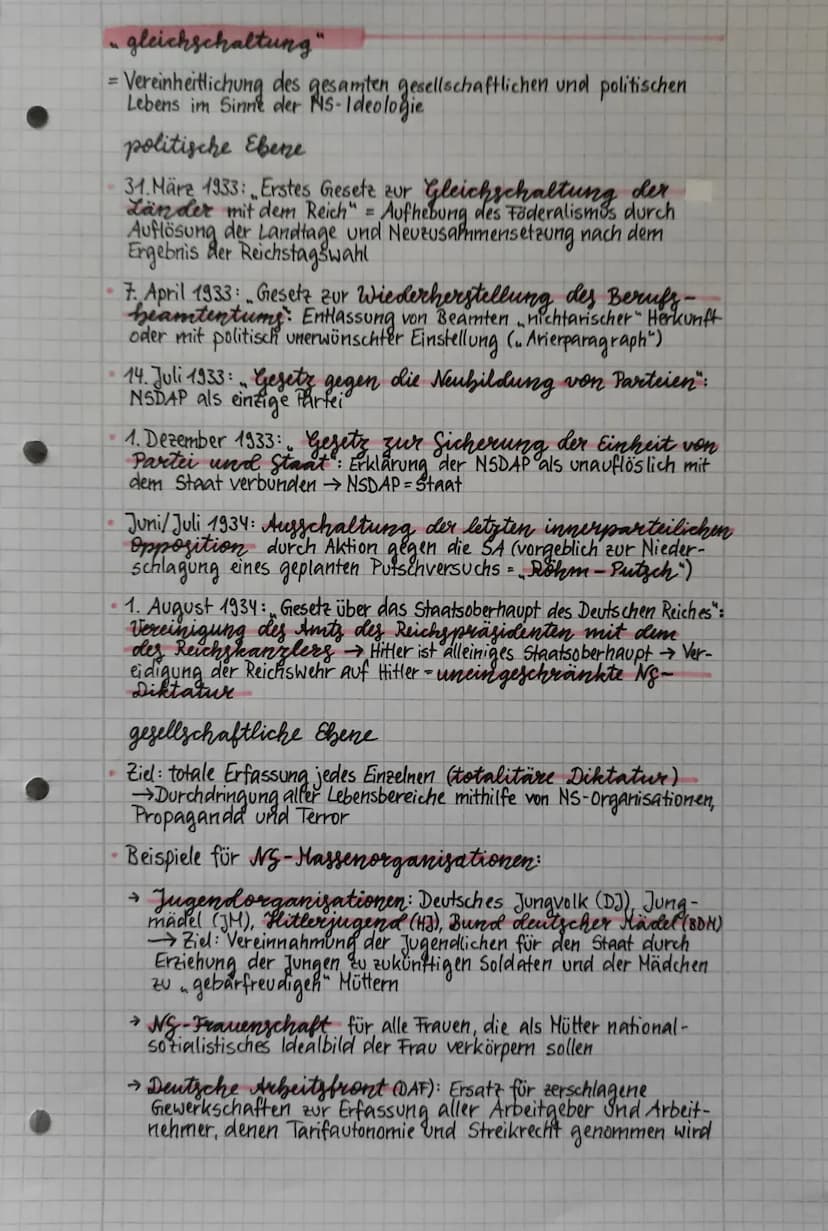 „gleichschaltung“
= Vereinheitlichung des gesamten gesellschaftlichen und politischen
Lebens im Sinne der NS-Ideologie
politische Ebene
• 31. März 1933: „Erstes Gesetz zur Gleichschaltung der
Länder mit dem Reich“ = Aufhebung des Föderalismus durch
Auflösung der Landtage und Neuzusammensetzung nach dem
Ergebnis der Reichstagswahl
• 7. April 1933: „Gesetz zur Wiederherstellung des Berufs-
beamtentums“: Entlassung von Beamten „nichtarischer“ Herkunft
oder mit politisch unerwünschter Einstellung („Arierparagraph“)
• 14. Juli 1933: „Gesetz gegen die Neubildung von Parteien“:
NSDAP als einzige Partei
• 1. Dezember 1933: „Gesetz zur Sicherung der Einheit von
Partei und Staat“: Erklärung der NSDAP als unauflöslich mit
dem Staat verbunden → NSDAP = Staat
• Juni/Juli 1934: Ausschaltung der letzten innerparteilichen
Opposition durch Aktion gegen die SA (vorgeblich zur Nieder-
schlagung eines geplanten Putschversuchs = „Röhm-Putsch“)
• 1. August 1934: „Gesetz über das Staatsoberhaupt des Deutschen Reiches“:
Vereinigung des Amts des Reichspräsidenten mit dem
des Reichskanzlers → Hitler ist alleiniges Staatsoberhaupt → Ver-
eidigung der Reichswehr auf Hitler = uneingeschränkte NS-
Diktatur
gesellschaftliche Ebene
• Ziel: totale Erfassung jedes Einzelnen (totalitäre Diktatur)
→ Durchdringung aller Lebensbereiche mithilfe von NS-Organisationen,
Propaganda und Terror
• Beispiele für NS-Massenorganisationen:
→ Jugendorganisationen: Deutsches Jungvolk (DJ), Jung-
mädel (JM), Hitlerjugend (HJ), Bund deutscher Mädel (BDM)
→ Ziel: Vereinnahmung der Jugendlichen für den Staat durch
Erziehung der Jungen zu zukünftigen Soldaten und der Mädchen
zu „gebärfreudigen“ Müttern
→ NS-Frauenschaft für alle Frauen, die als Mütter national-
sozialistisches Idealbild der Frau verkörpern sollen
→ Deutsche Arbeitsfront (DAF): Ersatz für zerschlagene
Gewerkschaften zur Erfassung aller Arbeitgeber und Arbeit-
nehmer, denen Tarifautonomie und Streikrecht genommen wird